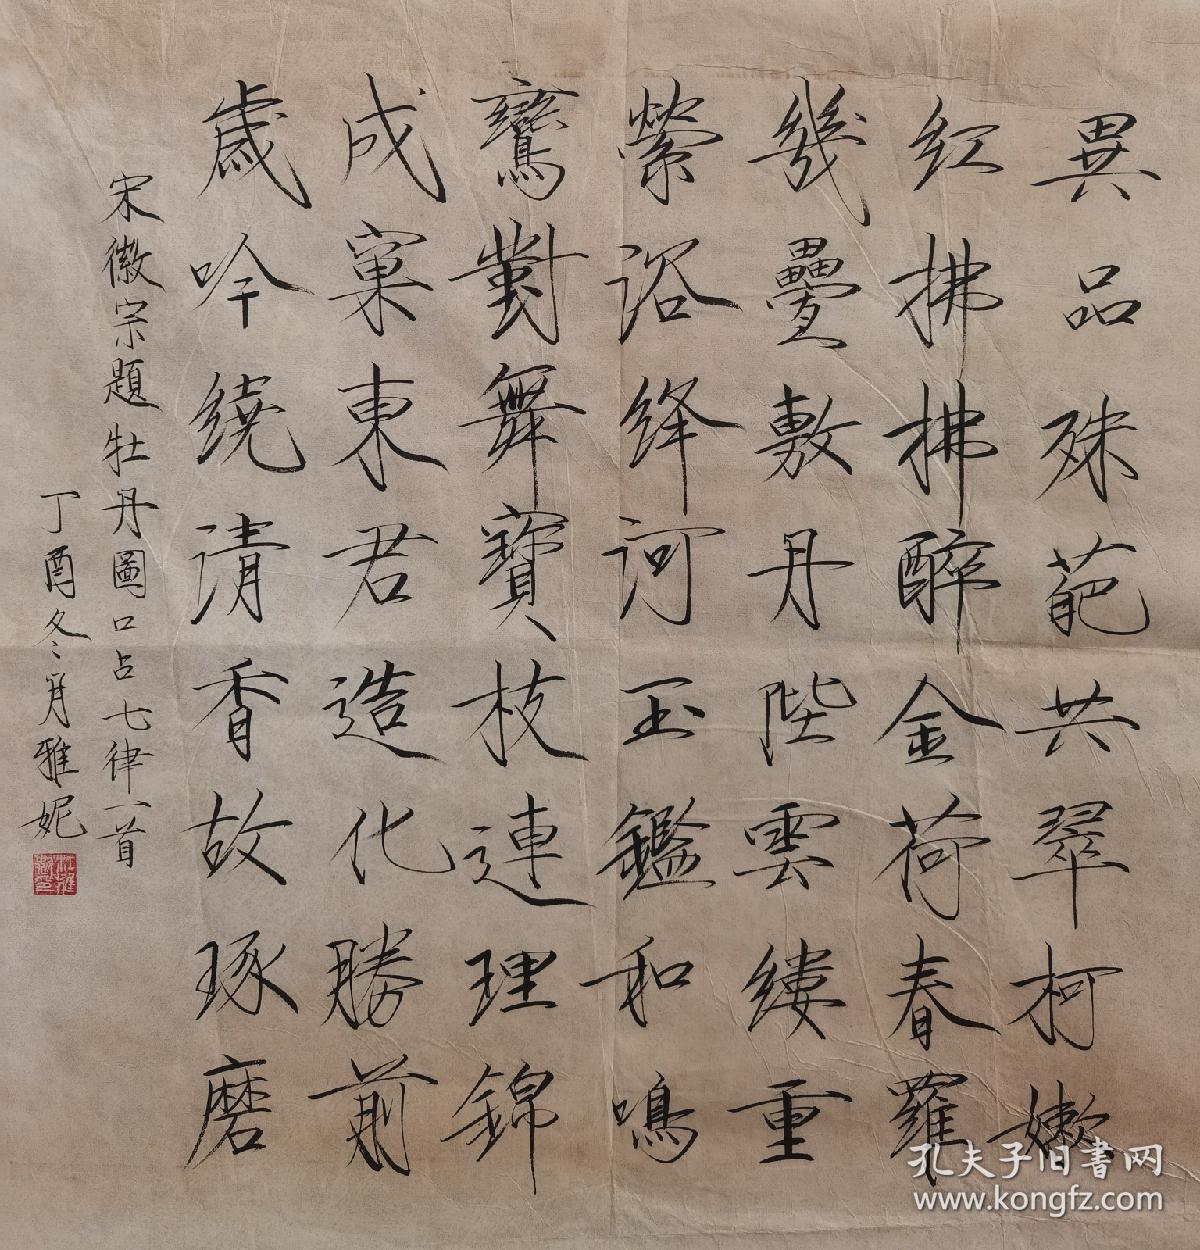 異品殊葩共翠柯嫩
紅拂拂醉金荷春羅
幾疊敷丹陛雲縷重
縈浴絳河玉鑑和鳴
鸞對舞寶枝連理錦
成窠東君造化勝前
歲吟繞清香故琢磨
宋徽宗題牡丹圖口占七律一首
丁酉冬月雅妮
孔夫子旧書网
www.kongfz.com